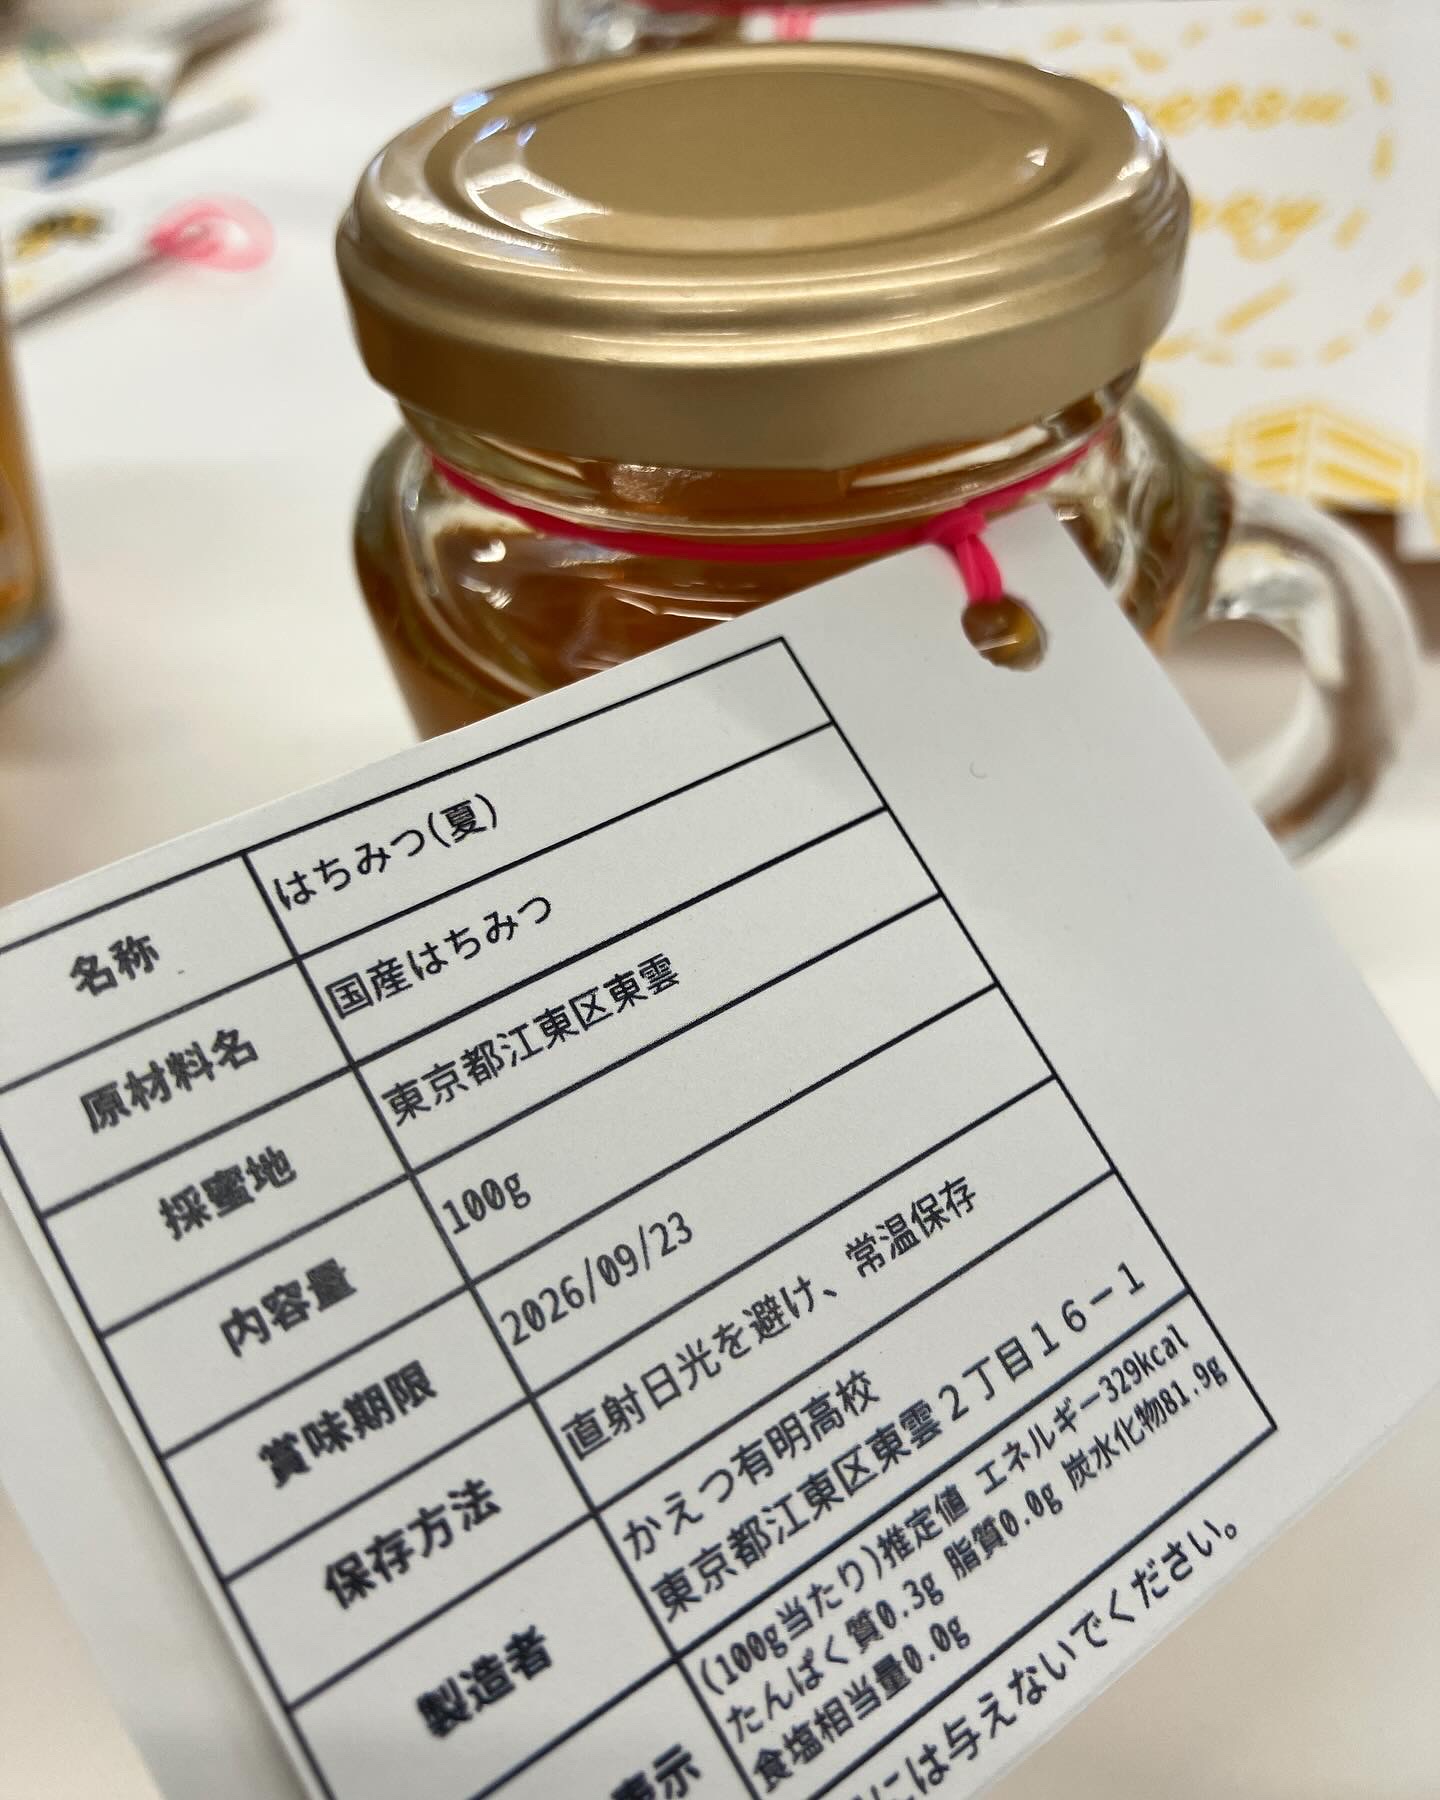 名称 はちみつ(夏)
原材料名 国産はちみつ
採蜜地 東京都江東区東雲
内容量 100g
賞味期限 2026/09/23
保存方法 直射日光を避け、常温保存
製造者 かえつ有明高校
東京都江東区東雲２丁目１６－１
表示 (100g当たり)推定値 エネルギー329kcal
たんぱく質0.3g 脂質0.0g 炭水化物81.9g
食塩相当量0.0g
には与えないでください。